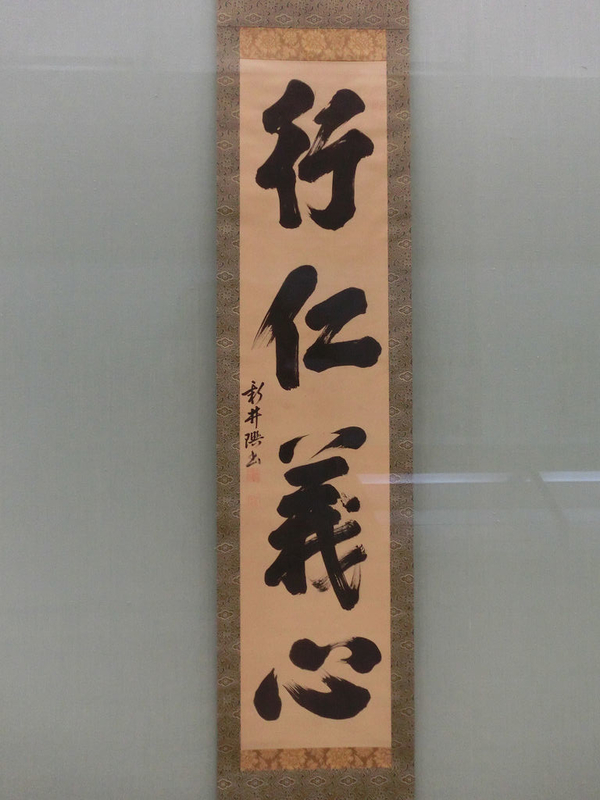 行仁義心
新井隩書